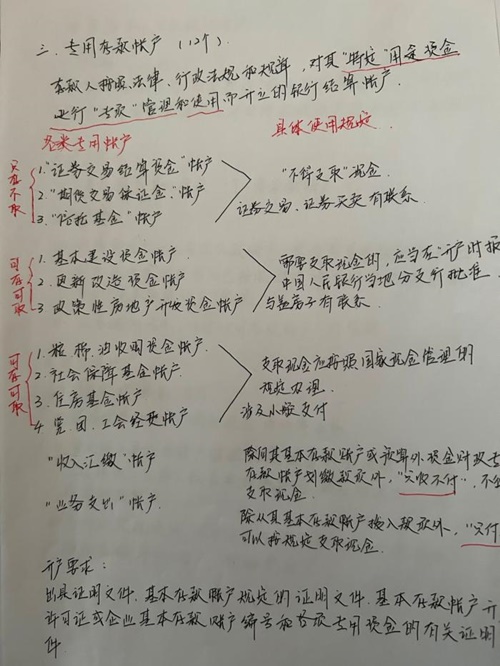 三、专用存款帐户（12个）.
存款人按照法律、行政法规和规章，对其"特定"用途资金
进行"专项"管理和使用而开立的银行结算帐户.
各类专用帐户
具体使用规定.
只存不取
1. "证券交易结算资金"帐户
2. "期货交易保证金"帐户
3. "信托基金"帐户
"不得支取"现金.
证券交易、证券买卖有联系
可存可取
1. 基本建设资金帐户
2. 更新改造资金帐户
3 政策性房地产开发资金帐户
需要支取现金的，应当在"开户时报
中国人民银行当地分支行批准.
与盖房子有联系
可存可取
1. 粮、棉、油收购资金帐户.
2. 社会保障基金帐户.
3. 住房基金帐户
4 党、团、工会经费帐户
支取现金应按照国家现金管理的
规定办理.
涉及小额支付
"收入汇缴"帐户
除向其基本存款账户或预算外资金财政专
存款帐户划缴款项外，"只收不付".
支取现金.
"业务支出"帐户.
除从其基本存款账户拨入款项外，"只付
可以按规定支取现金.
开户要求：
出具证明文件.基本存款账户规定的证明文件.基本存款帐户开
许可证或企业基本存款账户编号和各项专用资金的有关证明
件